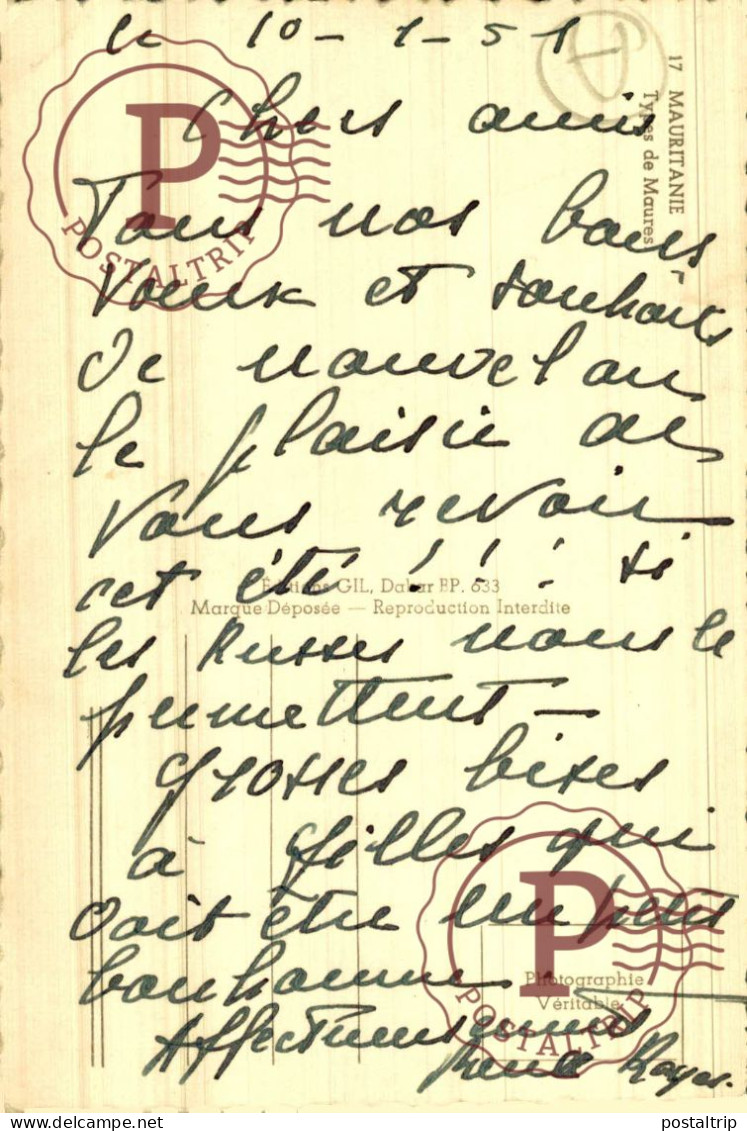 le 10-1-51
Chers amis
Tous nos bons
voeux et souhaits
de nouvel an
le plaisir de
vous revoir
cet été ! ! ! si
les Russes nous le
permettent —
grosses bises
à Gilles qui
doit être un petit
bonhomme
Affectueusement
17 MAURITANIE
Types de Maures
Editions GIL, Dakar BP. 633
Marque Déposée — Reproduction Interdite
Photographie
Véritable
P
POSTALTRIP
P
POSTALTRIP
www.delcampe.net
postaltrip